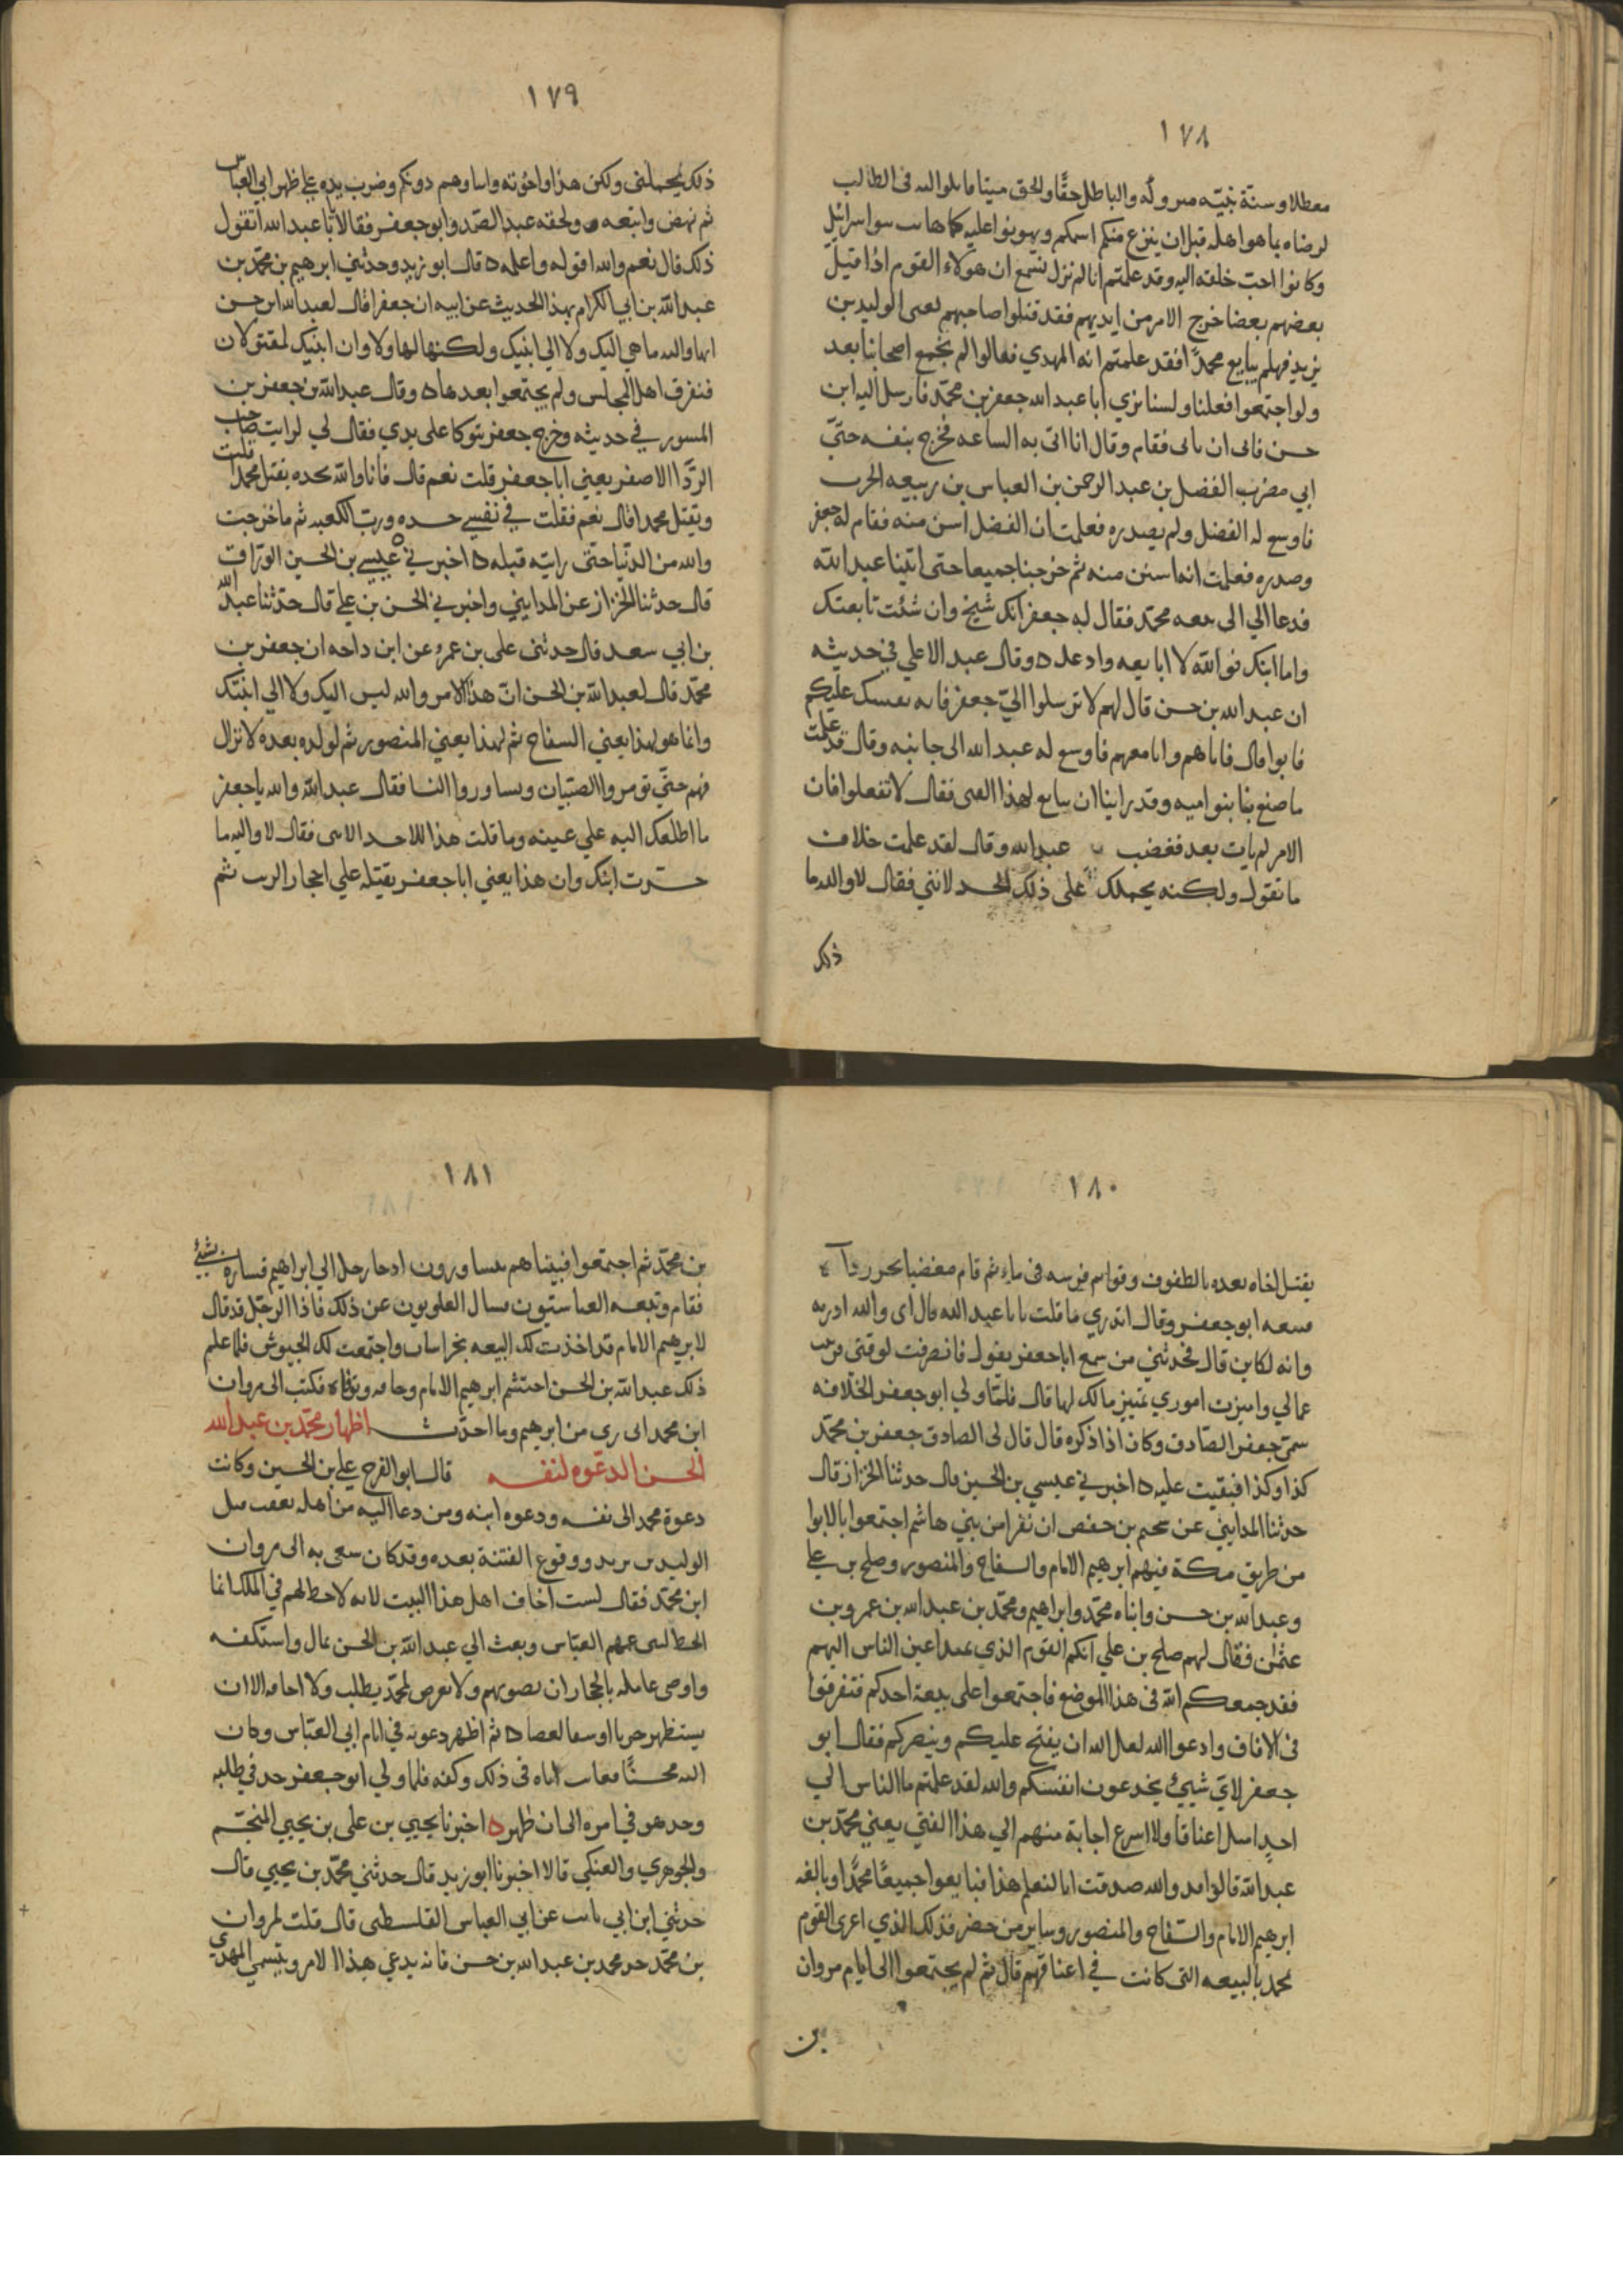 ١٧٨
معطلا وسنة نبيه متروكه والباطل حقا والحق ميتا قاتلوا لله فى الطالب
لرضاه بما هو اهله قبل ان ينزع منكم اسمكم وتهونوا عليه كما هانت بنو اسرائيل
وكانوا احب خلقه اليه وقد علمتم انا لم نزل نسمع ان هولاء القوم اذا قتل
بعضهم بعضا خرج الامر من ايديهم فقد قتلوا صاحبهم يعنى الوليد بن
يزيد فهلم نبايع محمدا فقد علمتم انه المهدي فقالوا لم يجمع اصحابنا بعد
ولو اجتمعوا فعلنا ولسنا نرى ابا عبد الله جعفر بن محمد فارسل اليه ابن
حسن فابى ان ياتى فقام وقال انا اتى به الساعه فخرج بنفسه حتى
اتى مضرب الفضل بن عبد الرحمن بن العباس بن ربيعه الحرث
فاوسع له الفضل ولم يصدره فعلمت ان الفضل اسن منه فقام له جعفر
وصدره فعلمت انه اسن منه ثم خرجنا جميعا حتى اتينا عبد الله
فدعا الى بيعه محمد فقال له جعفر انك شيخ وان شئت تابعتك
واما ابنك فوالله لا ابايعه وادعك ه وقال عبد الاعلى فى حديثه
ان عبد الله بن حسن قال لهم لا ترسلوا الى جعفر فانه يفسد عليكم
فابوا قال فاتاهم وانا معهم فاوسع له عبد الله الى جانبه وقال قد علمت
ما صنع بنا بنو اميه وقد راينا ان نبايع لهذا الفتى فقال لا تفعلوا فان
الامر لم يات بعد فغضب عبد الله وقال لقد علمت خلاف
ما تقول ولكنه يحملك على ذلك الحسد لابني فقال لا والله ما
ذلك
١٧٩
ذلك يحملني ولكن هذا واخوته وابناوهم دونكم وضرب يده على ظهر ابي العباس
ثم نهض واتبعه ولحقه عبد الصمد وابو جعفر فقالا يا با عبد الله اتقول
ذلك قال نعم والله اقوله واعلمه ه قال ابو زيد وحدثني ابرهيم بن محمد بن
عبد الله بن ابي الكرام بهذا الحديث عن ابيه ان جعفرا قال لعبد الله ابن حسن
انها والله ما هي اليك ولا الى ابنيك ولكنها لهاولا وان ابنيك لمقتولان
فتفرق اهل المجلس ولم يجتمعوا بعدها ه وقال عبد الله بن جعفر بن
المسور في حديثه وخرج جعفر يتوكا على يدي فقال لي ارايت صاحب
الردا الاصفر يعني ابا جعفر قلت نعم قال فانا والله نجده يقتل محمدا قلت
ويقتل محمدا قال نعم فقلت في نفسي حسده ورب الكعبه ثم ما خرجت
والله من الدنيا حتى رايته قتله ه اخبرني عيسى بن الحسين الوراق
قال حدثنا الخزاز عن المدايني واخبرني الحسن بن علي قال حدثنا عبد الله
بن ابي سعد قال حدثنى على بن عمرو عن ابن داحه ان جعفر بن
محمد قال لعبد الله بن الحسن ان هذا الامر والله ليس اليك ولا الى ابنيك
وانما هو لهذا يعني السفاح ثم لهذا يعني المنصور ثم لولده بعده لا تزال
فيهم حتى يومروا الصبيان ويشاوروا النسا فقال عبد الله والله يا جعفر
ما اطلعك الله على غيبه وما قلت هذا الا حسدا لابنى فقال لا والله ما
حسدت ابنك وان هذا يعني ابا جعفر يقتله على احجار الزيت ثم
١٨٠
يقتل اخاه بعده بالطفوف وقوايم فرسه فى ماء ثم قام مغضبا يجر رداه
فتبعه ابو جعفر وقال اتدري ما قلت يا با عبد الله قال اى والله ادريه
وانه لكاين قال فحدثني من سمع ابا جعفر يقول فانصرفت لوقتى فرتبت
عمالي وميزت اموري تمييز مالك لها قال فلما ولي ابو جعفر الخلافه
سمى جعفر الصادق وكان اذا ذكره قال قال لى الصادق جعفر بن محمد
كذا وكذا فبقيت عليه ه اخبرني عيسى بن الحسين قال حدثنا الخزاز قال
حدثنا المدايني عن سحيم بن حفص ان نفرا من بني هاشم اجتمعوا بالابوا
من طريق مكة فيهم ابرهيم الامام والسفاح والمنصور وصلح بن علي
وعبد الله بن حسن وابناه محمد وابراهيم ومحمد بن عبد الله بن عمرو بن
عثمن فقال لهم صلح بن علي انكم القوم الذي تمتد اعين الناس اليهم
فقد جمعكم الله فى هذا الموضع فاجتمعوا على بيعة احدكم فتفرقوا
فى الافاق وادعوا الله لعل الله ان يفتح عليكم وينصركم فقال ابو
جعفر لاي شيئ تخدعون انفسكم والله لقد علمتم ما الناس الي
احد اميل اعناقا ولا اسرع اجابة منهم الي هذا الفتي يعني محمد بن
عبد الله قالوا قد والله صدقت انا لنعلم هذا فبايعوا جميعا محمدا وبايعه
ابرهيم الامام والسفاح والمنصور وساير من حضر فذلك الذي اغرى القوم
لمحمد بالبيعه التى كانت في اعناقهم قال ثم لم يجتمعوا الى ايام مروان
بن
١٨١
بن محمد ثم اجتمعوا فبيناهم يتشاورون اذ جا رجل الي ابراهيم فساره بشيئ
فقام وتبعه العباسيون فسال العلويون عن ذلك فاذا الرجل قد قال
لابرهيم الامام قد اخذت لك البيعه بخراسان واجتمعت لك الجيوش فلما علم
ذلك عبد الله بن الحسن احتشم ابرهيم الامام وخافه وتوقاه فكتب الى مروان
ابن محمد انى برى من ابرهيم وما احدث اظهار محمد بن عبد الله
الحسن الدعوه لنفسه قال ابو الفرج علي بن الحسين وكانت
دعوة محمد الى نفسه ودعوه ابيه ومن دعا اليه من اهله بعقب قتل
الوليد بن يزيد ووقوع الفتنة بعده وقد كان سعى به الى مروان
ابن محمد فقال لست اخاف اهل هذا البيت لانه لا حظ لهم في الملك انما
الحظ لبنى عمهم العباس وبعث الي عبد الله بن الحسن بمال واستكفه
واوصى عامله بالحجاز ان يصونهم ولا يعرض لمحمد بطلب ولا اخافه الا ان
يستظهر حربا او شقا لعصا ه ثم اظهر دعوته في ايام ابي العباس وكان
اليه محسنا فعاتب اباه فى ذلك وكفه فلما ولي ابو جعفر جد في طلبه
وجد هو في امره الى ان ظهر ه اخبرنا يحيي بن على بن يحيي المنجم
والجوهري والعتكي قالا اخبرنا ابو زيد قال حدثني محمد بن يحيي قال
حدثني ابن ابي ثابت عن ابي العباس الفلسطى قال قلت لمروان
بن محمد جد محمد بن عبد الله بن حسن فانه يدعي هذا الامر ويتسمي المهدي